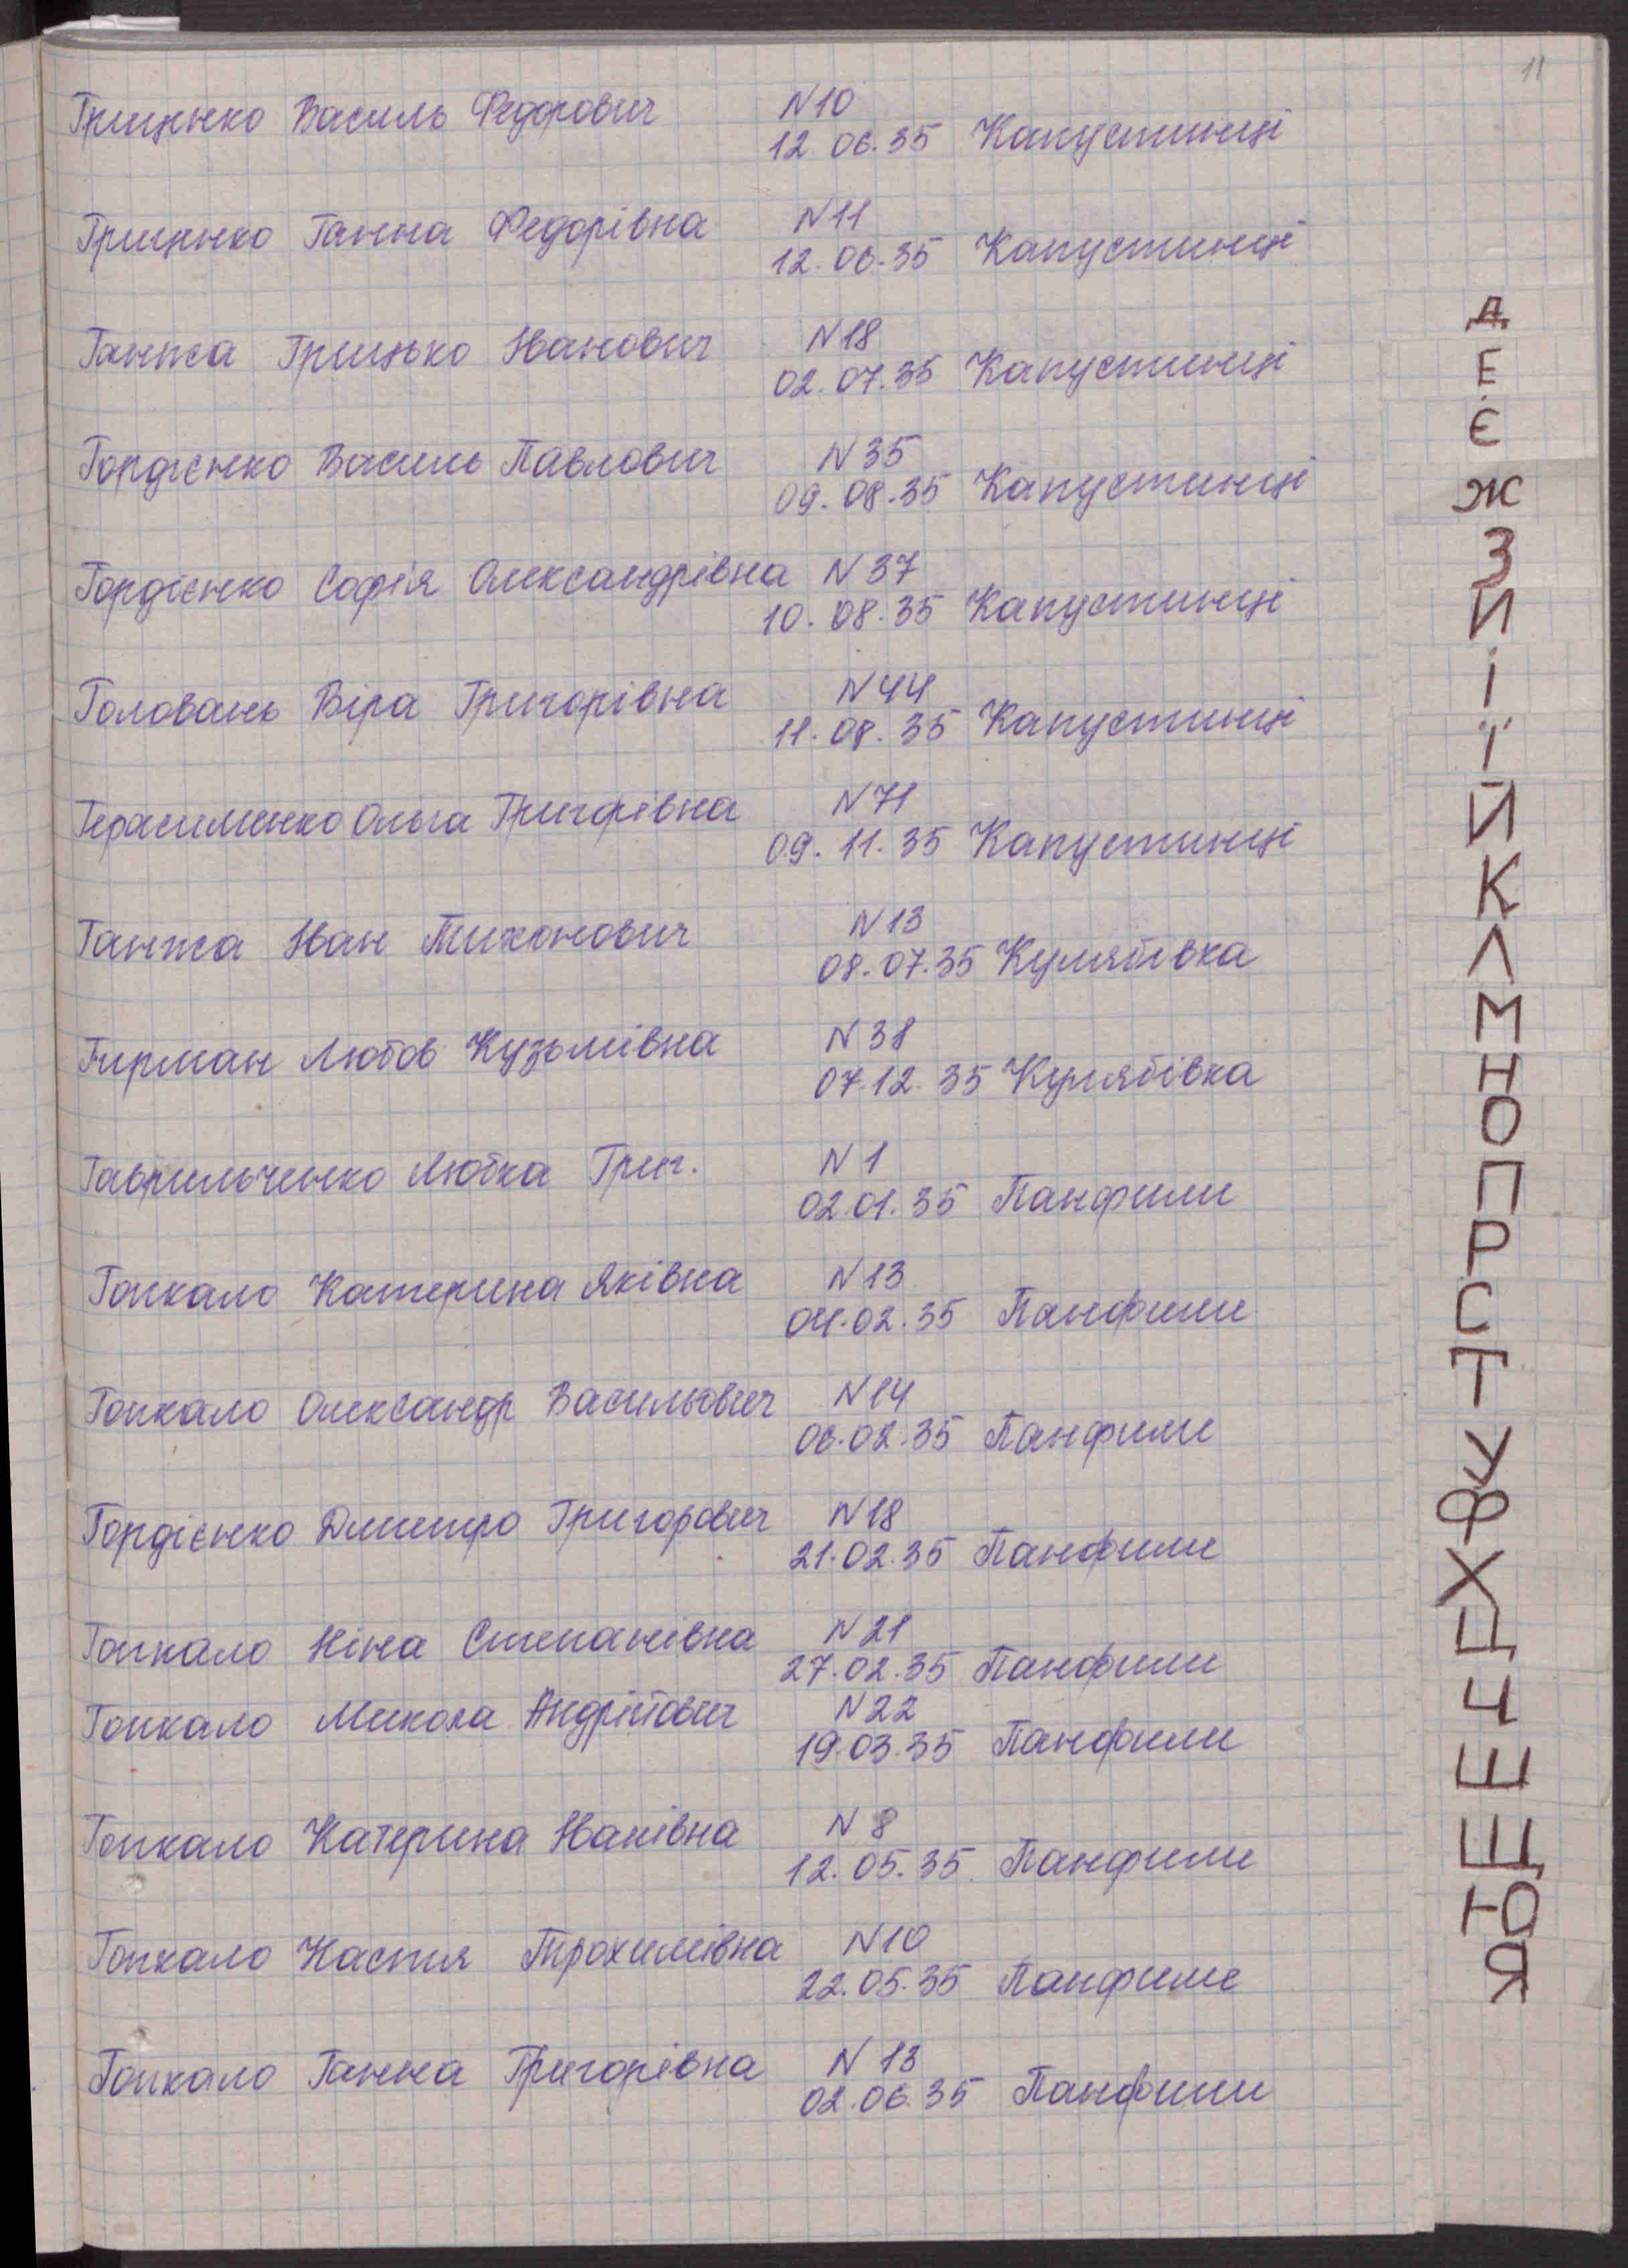 11
Гриценко Василь Федорович N10
12.06.35 Капустинці
Гриценко Ганна Федорівна N11
12.06.35 Капустинці
Ганжа Грицько Іванович N18
02.07.35 Капустинці
Гордієнко Василь Павлович N35
09.08.35 Капустинці
Гордієнко Софія Олександрівна N37
10.08.35 Капустинці
Головань Віра Григорівна N44
11.08.35 Капустинці
Герасименко Ольга Григорівна N71
09.11.35 Капустинці
Ганжа Іван Тихонович N13
08.07.35 Кулябівка
Гирман Любов Кузьмівна N38
07.12.35 Кулябівка
Гаврильченко Любка Григ. N1
02.01.35 Панфили
Гопкало Катерина Яківна N13
04.02.35 Панфили
Гопкало Олександр Васильович N14
06.02.35 Панфили
Гордієнко Дмитро Григорович N18
21.02.35 Панфили
Гопкало Ніна Степанівна N21
27.02.35 Панфили
Гопкало Микола Андрійович N22
19.03.35 Панфили
Гопкало Катерина Іванівна N8
12.05.35 Панфили
Гопкало Настя Трохимівна N10
22.05.35 Панфили
Гопкало Ганна Григорівна N13
02.06.35 Панфили
Д
Е
Є
Ж
З
И
І
Ї
Й
К
Л
М
Н
О
П
Р
С
Т
У
Ф
Х
Ц
Ч
Ш
Щ
Ю
Я